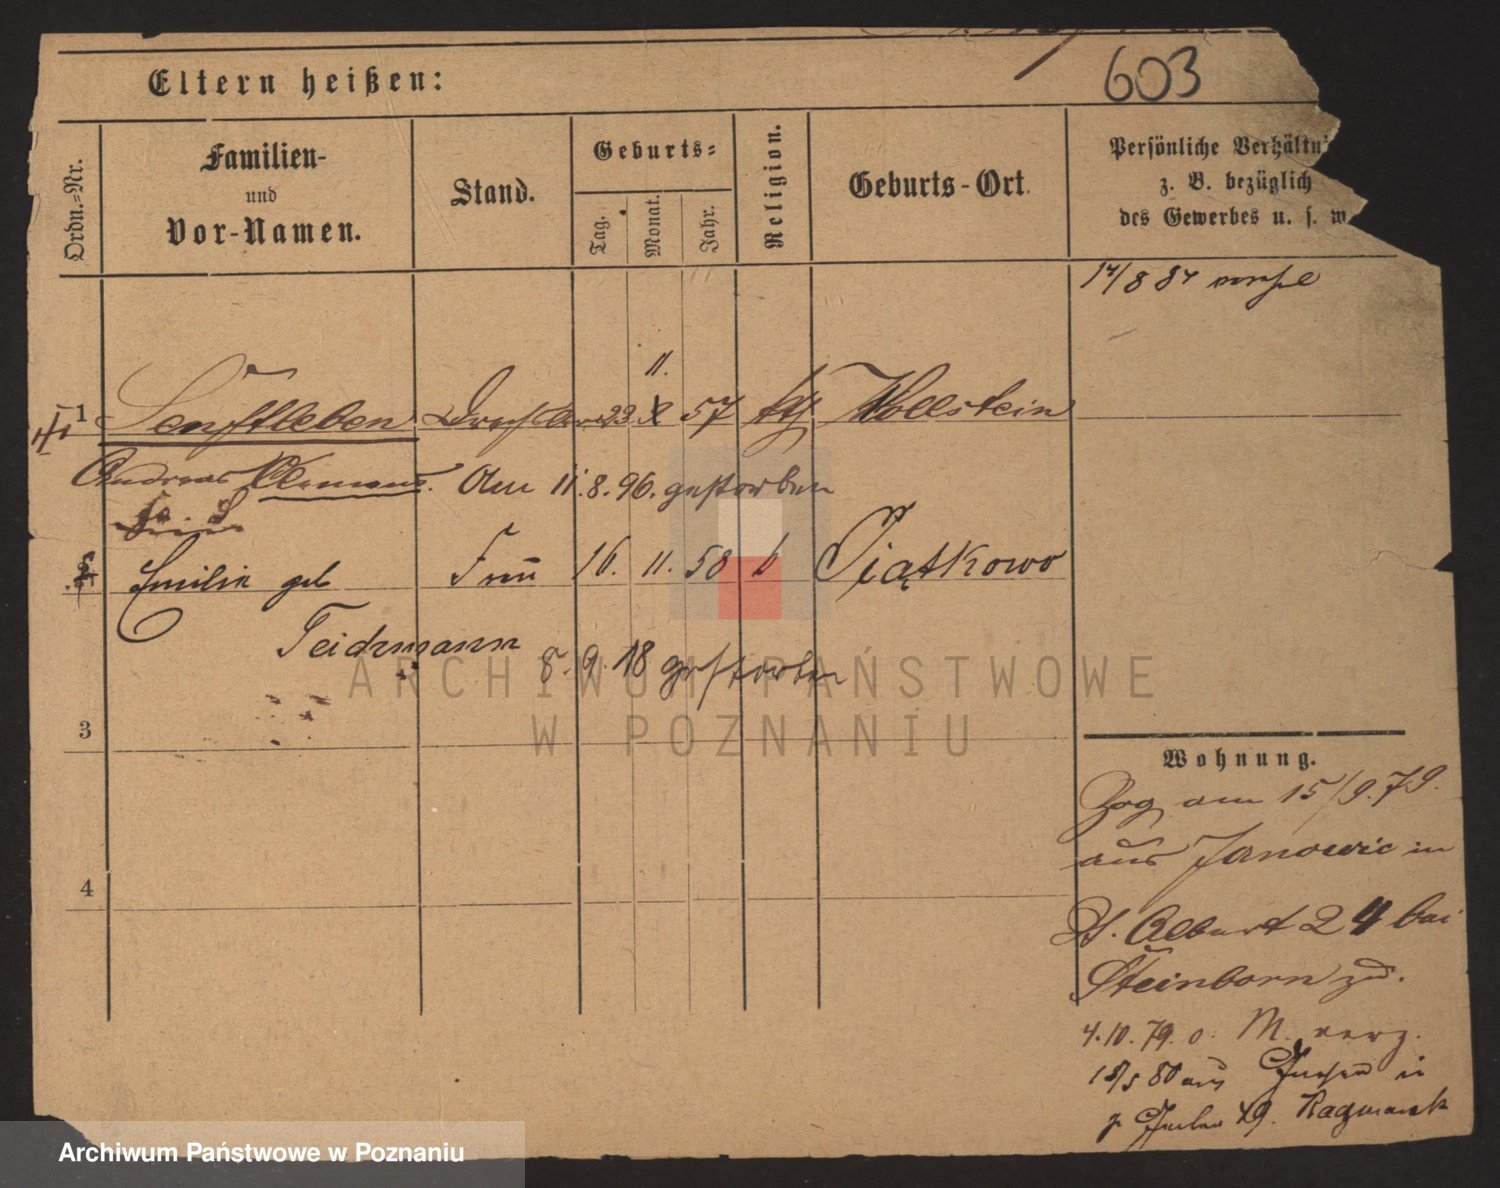 603
Eltern heißen:
Ordn.-Nr.
Familien-
und
Vor-Namen.
Stand.
Geburts=
Tag.
Monat.
Jahr.
Religion.
Geburts-Ort.
Persönliche Verhältni
z. B. bezüglich
des Gewerbes u. s. w
17/8 87
11.
1 Senftleben Drechsler 23 X 57 kth Wollstein
Andreas Clemens. Am 11.8.96. gestorben
Emilie geb Frau 16. 11. 58 k Piątkowo
Teichmann 8. 9. 18 gestorben
3
4
Wohnung.
Zog am 15/9.79.
aus Janowic in
St. Albert 24 bei
Steinborn zu.
4.10.79. o. M. verz.
18/5 80 aus Gnesen in
49.
ARCHIWUM PAŃSTWOWE
W POZNANIU
Archiwum Państwowe w Poznaniu